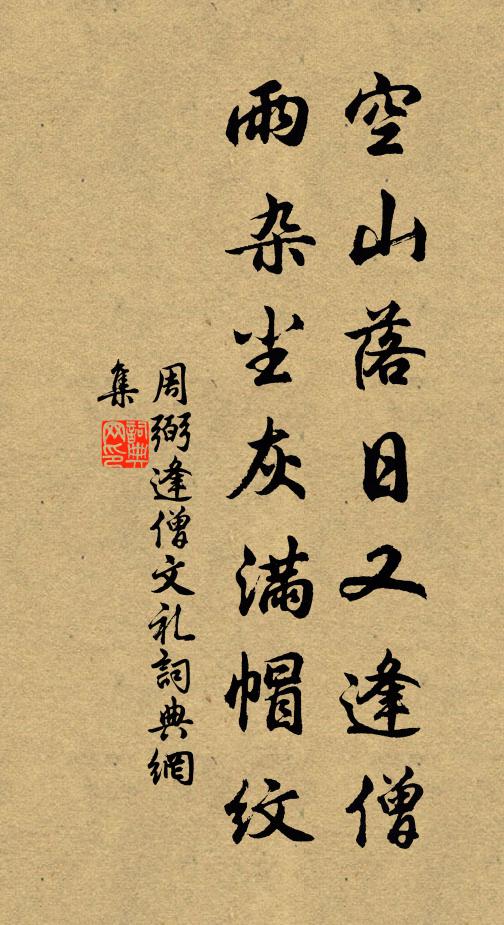 空山落日又逢僧
雨杂尘灰满帽纹
周弼逢僧文礼詞典網
集
詞典
网印